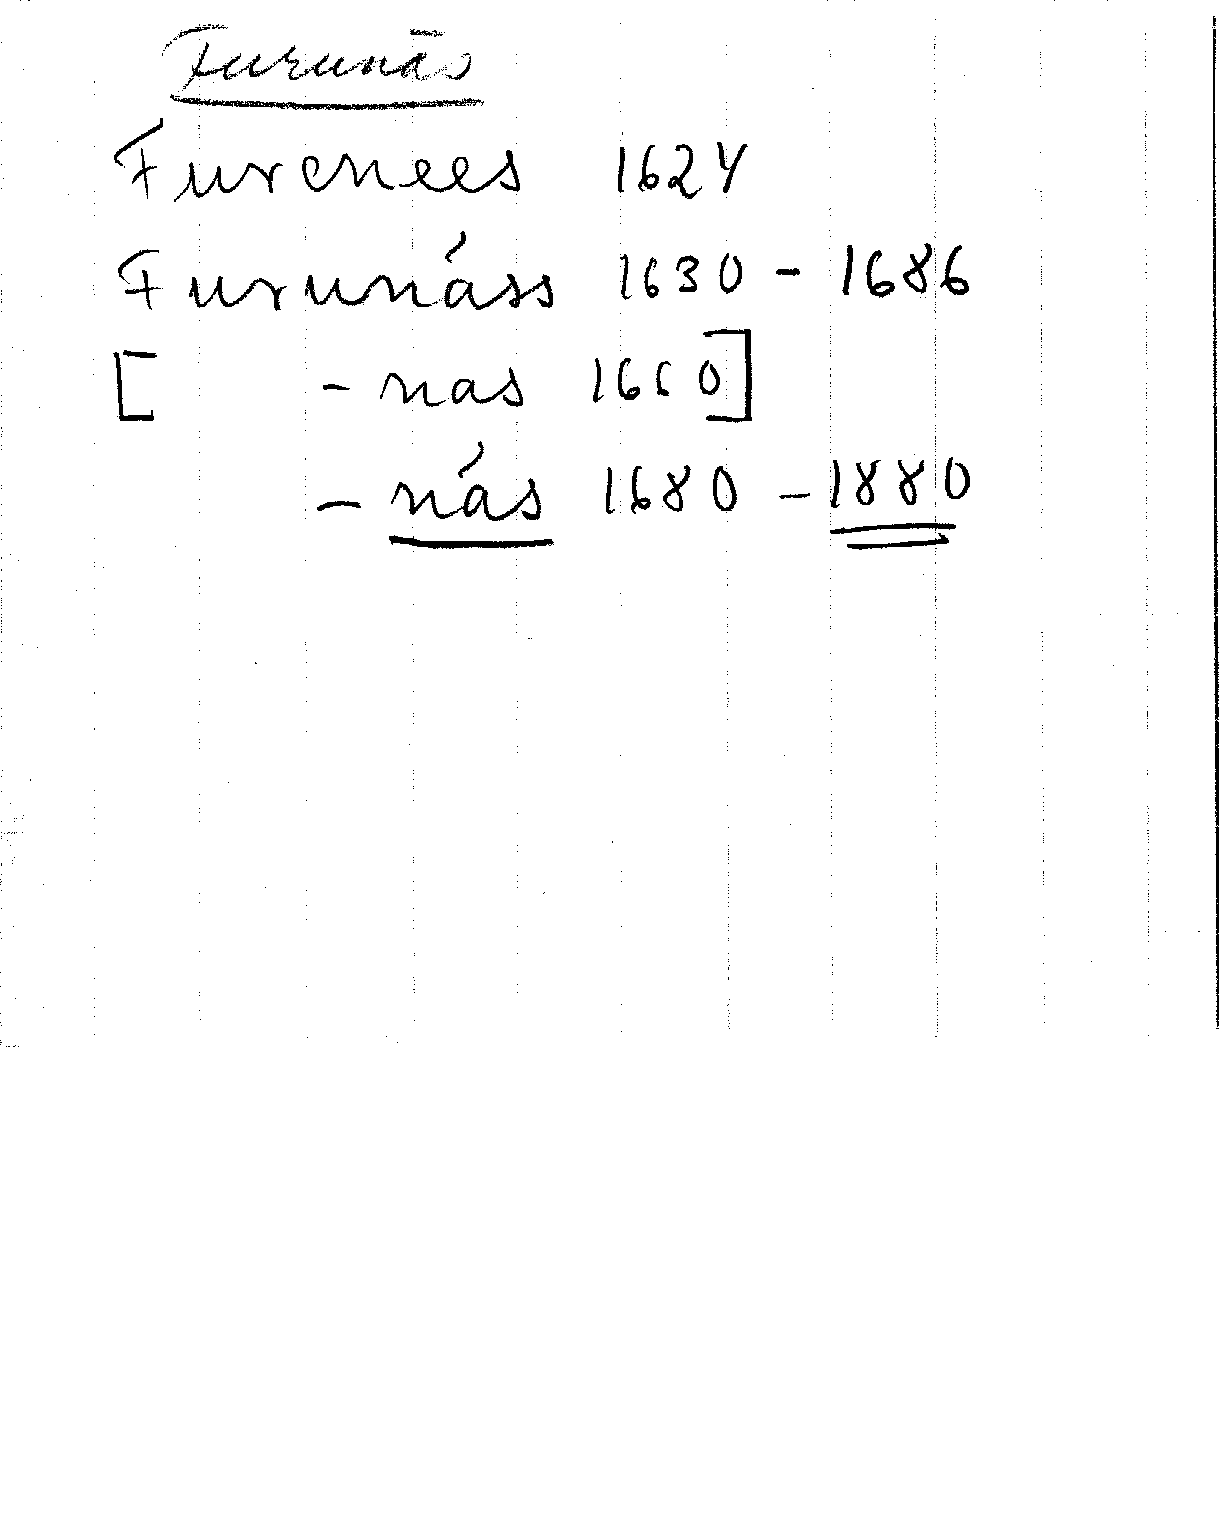 Furunäs
Furenees 1624
Furunáss 1630 - 1686
[ - nas 1660]
- nás 1680 - 1880